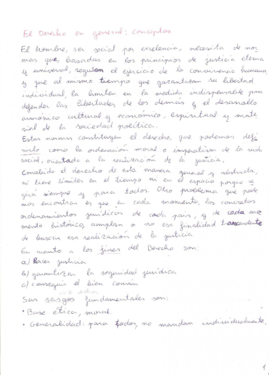 El Derecho en general: conceptos
El hombre, ser social por excelencia, necesita de nor
mas que basadas en los principios de justicia eterna
y universal, regulen el ejercicio de la convivencia humana
y que al mismo tiempo que garanticen su libertad
individual, la limiten en la medida indispensable para
defender las libertades de los demás y el desarrollo
armónico cultural y económico, espiritual y mate
rial de la sociedad política.
Estas normas constituyen el derecho, que podemos defi
nirlo como la ordenación moral e imperativa de la vida
social, orientada a la realización de la justicia.
Concebido el derecho de esta manera general y abstracta,
ni tiene límites en el tiempo ni en el espacio porque es
para siempre y para todos. Otro problema que pode
mos encontrar es que en cada momento, los concretos
ordenamientos jurídicos de cada país, y de cada mo
mento histórico cumplan o no esa finalidad
de basarse en realización de la justicia.
En cuanto a los fines del Derecho son:
a) justicia
b) garantizar la seguridad jurídica
c) conseguir el bien común
Sus rasgos fundamentales son:
• Base ética, moral
• Generalidad: para todos, no mandan individualmente,
1